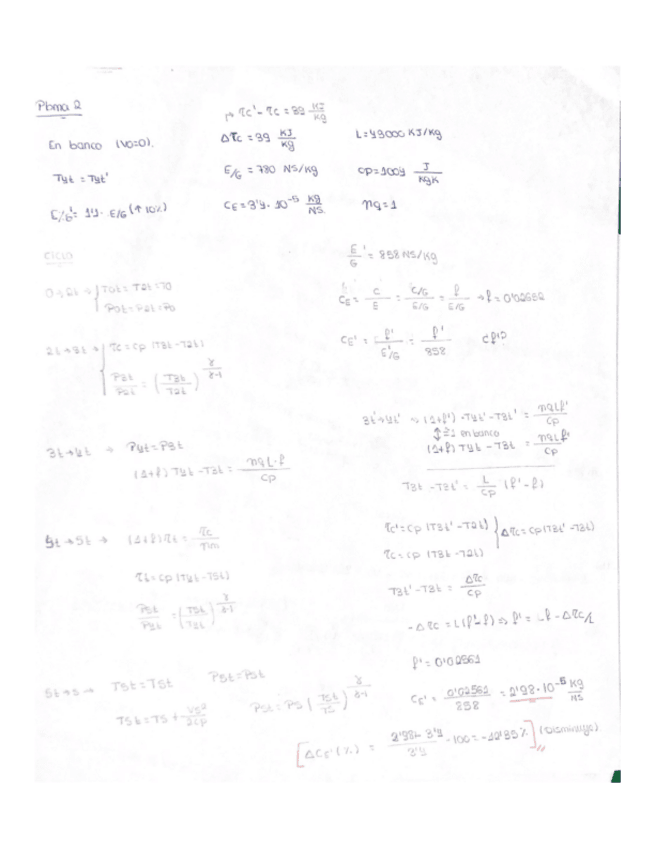 Pbma 2
En banco (V0=0).
T4t = T4t'
E/G' = 1'1 · E/G (↑ 10%)
τc' - τc = 39 KJ/Kg
Δτc = 39 KJ/Kg
E/G = 780 NS/Kg
CE = 3'4 · 10^-5 Kg/NS
L = 43000 KJ/Kg
cp = 1004 J/KgK
ηq = 1
CICLO
0→2t → { T0t = T2t = T0
P0t = P2t = P0
2t→3t → { τc = cp (T3t - T2t)
P3t/P2t = (T3t/T2t)^(γ/γ-1)
3t→4t → P4t = P3t
(1+f) T4t - T3t = ηq L · f/cp
4t→5t → (1+f) τt = τc/ηm
τt = cp (T4t - T5t)
P5t/P4t = (T5t/T4t)^(γ/γ-1)
5t→s → T5t = Tst P5t = Pst
T5t = Ts + Vs²/2cp
Pst = Ps (Tst/Ts)^(γ/γ-1)
E/G' = 858 NS/Kg
CE = C/E = C/G/E/G = f/E/G → f = 0'02652
CE' = f'/E'/G = f'/858 ¿f'?
3t'→4t' → (1+f') · T4t' - T3t' = ηq L f'/cp
≃1 en banco
(1+f) T4t - T3t = ηq L f/cp
T3t - T3t' = L/cp (f' - f)
τc' = cp (T3t' - T2t) } Δτc = cp (T3t' - T3t)
τc = cp (T3t - T2t)
T3t' - T3t = Δτc/cp
- Δτc = L (f' - f) → f' = Lf - Δτc/L
f' = 0'02561
CE' = 0'02561/858 = 2'98 · 10^-5 Kg/NS
[ΔCE' (%) = 2'98 - 3'4/3'4 · 100 = -12'35%] (Disminuye)